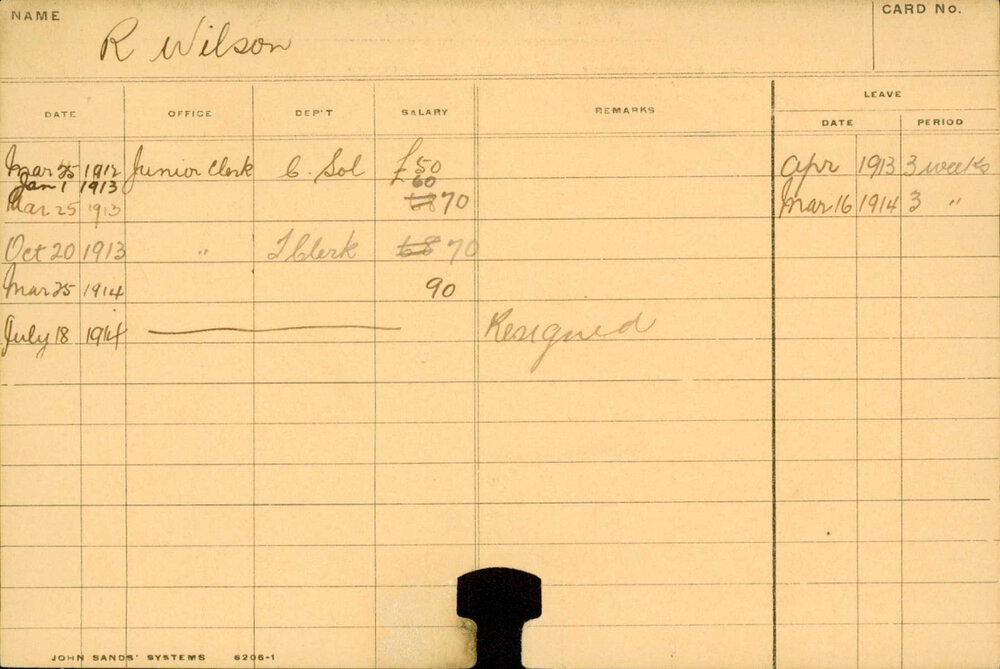 NAME
R Wilson
CARD No.
DATE OFFICE DEP'T SALARY REMARKS LEAVE
DATE PERIOD
Mar 25 1912 Junior Clerk C. Sol £50 Apr 1913 3 weeks
Jan 1 1913 60
Mar 25 1913 68 70 Mar 16 1914 3 "
Oct 20 1913 " T Clerk 68 70
Mar 25 1914 90
July 18 1914 Resigned
JOHN SANDS' SYSTEMS 6206-1